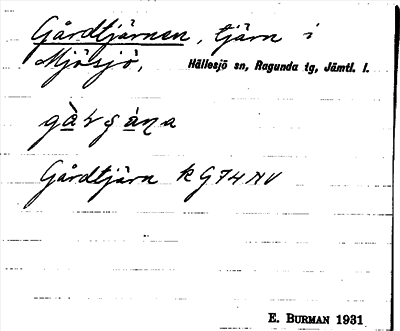 Gårdtjärnen, tjärn i
Mjösjö, Hällesjö sn, Ragunda tg, Jämtl. l.
Gårdtjärn k G74 NV
E. BURMAN 1931